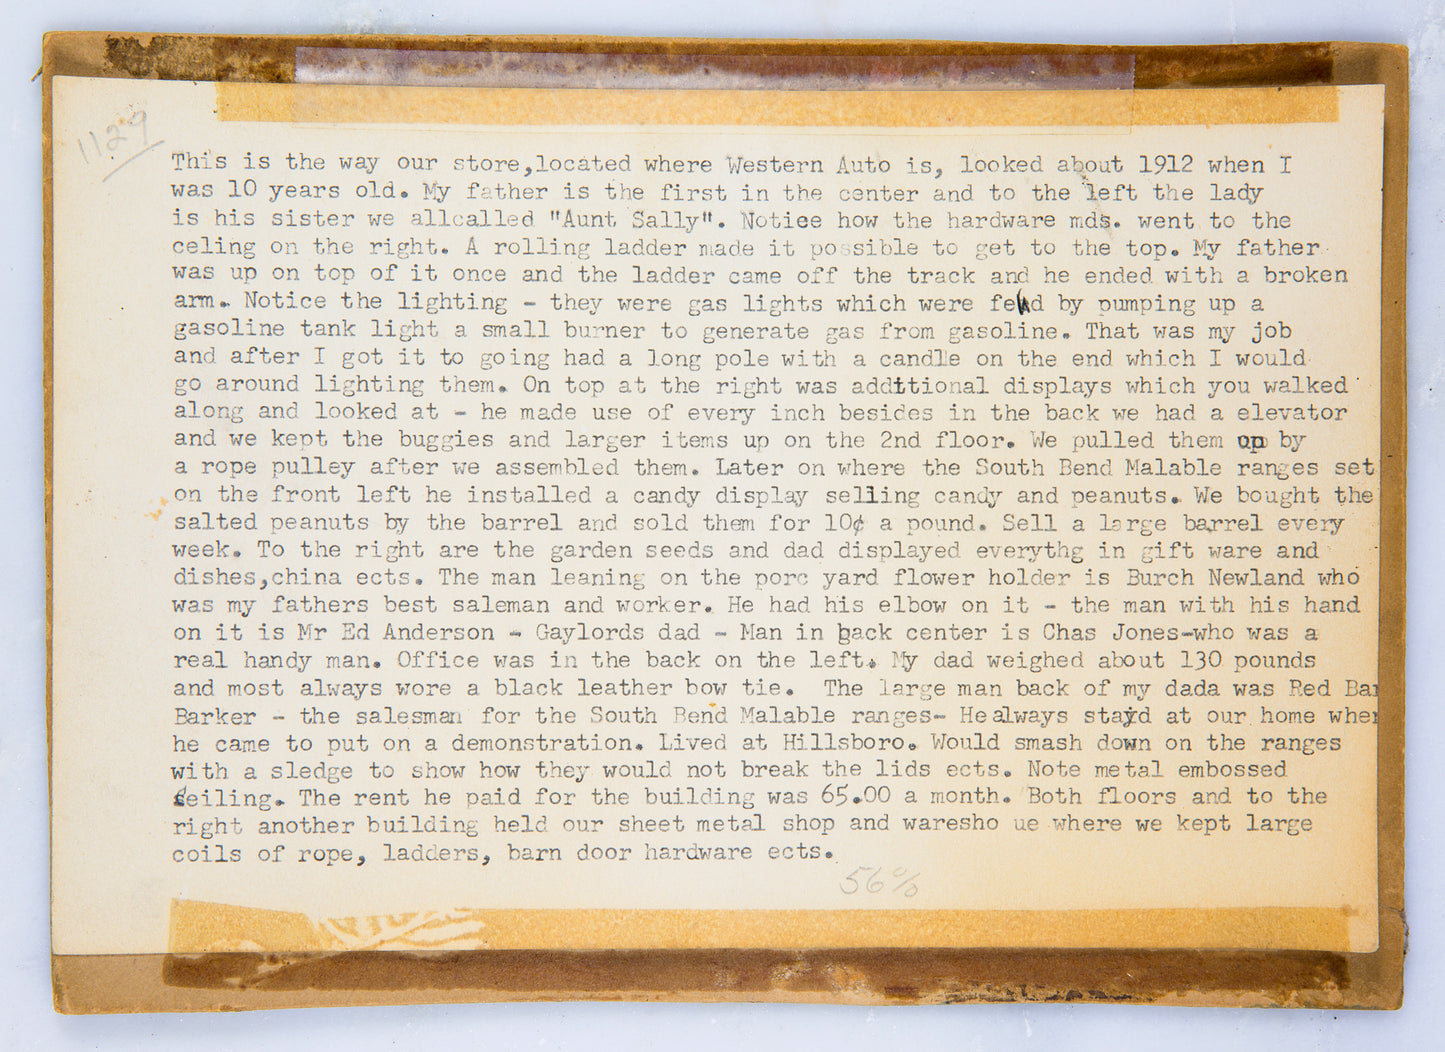 1129
This is the way our store,located where Western Auto is, looked about 1912 when I
was 10 years old. My father is the first in the center and to the left the lady
is his sister we allcalled "Aunt Sally". Notice how the hardware mds. went to the
celing on the right. A rolling ladder made it possible to get to the top. My father
was up on top of it once and the ladder came off the track and he ended with a broken
arm. Notice the lighting - they were gas lights which were fed by pumping up a
gasoline tank light a small burner to generate gas from gasoline. That was my job
and after I got it to going had a long pole with a candle on the end which I would
go around lighting them. On top at the right was additional displays which you walked
along and looked at - he made use of every inch besides in the back we had a elevator
and we kept the buggies and larger items up on the 2nd floor. We pulled them up by
a rope pulley after we assembled them. Later on where the South Bend Malable ranges set
on the front left he installed a candy display selling candy and peanuts. We bought the
salted peanuts by the barrel and sold them for 10¢ a pound. Sell a large barrel every
week. To the right are the garden seeds and dad displayed everythg in gift ware and
dishes,china ects. The man leaning on the porc yard flower holder is Burch Newland who
was my fathers best saleman and worker. He had his elbow on it - the man with his hand
on it is Mr Ed Anderson - Gaylords dad - Man in back center is Chas Jones-who was a
real handy man. Office was in the back on the left. My dad weighed about 130 pounds
and most always wore a black leather bow tie. The large man back of my dada was Red Bar
Barker - the salesman for the South Bend Malable ranges- Healways stayd at our home when
he came to put on a demonstration. Lived at Hillsboro. Would smash down on the ranges
with a sledge to show how they would not break the lids ects. Note metal embossed
ceiling. The rent he paid for the building was 65.00 a month. Both floors and to the
right another building held our sheet metal shop and waresho ue where we kept large
coils of rope, ladders, barn door hardware ects.
56%